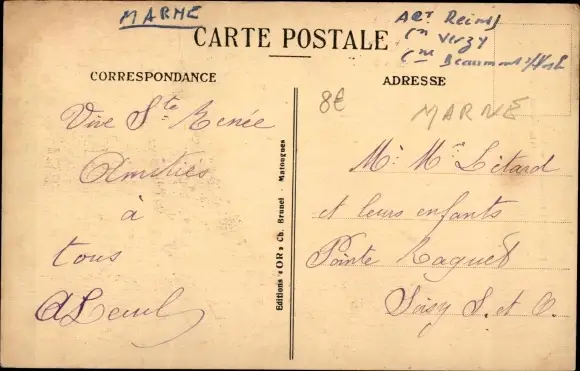 MARNE
Arr Reims
Cn Verzy
Cne Beaumont s/Vesle
CARTE POSTALE
CORRESPONDANCE
ADRESSE
8€
MARNE
Vive Ste Renée
Amitiés
à
tous
Editions "OR" Ch. Brunel - Matougues
Mr Me Létard
et leurs enfants
Pointe Raquet
Soisy S. et O.